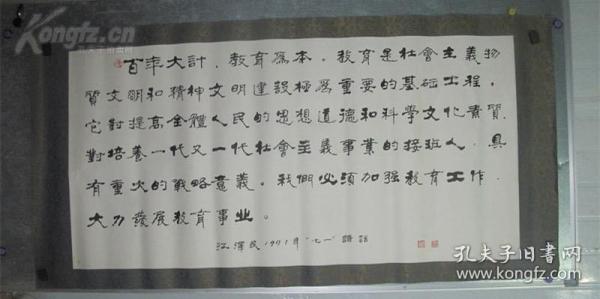 Kongfz.cn
百年大計，教育為本。教育是社會主義物
質文明和精神文明建設極為重要的基础工程，
它對提高全體人民的思想道德和科學文化素質，
對培養一代又一代社會主義事業的接班人，具
有重大的戰略意義。我們必須加强教育工作，
大力發展教育事业。
江澤民1991年“七一”講話
孔夫子旧书网
www.kongfz.com